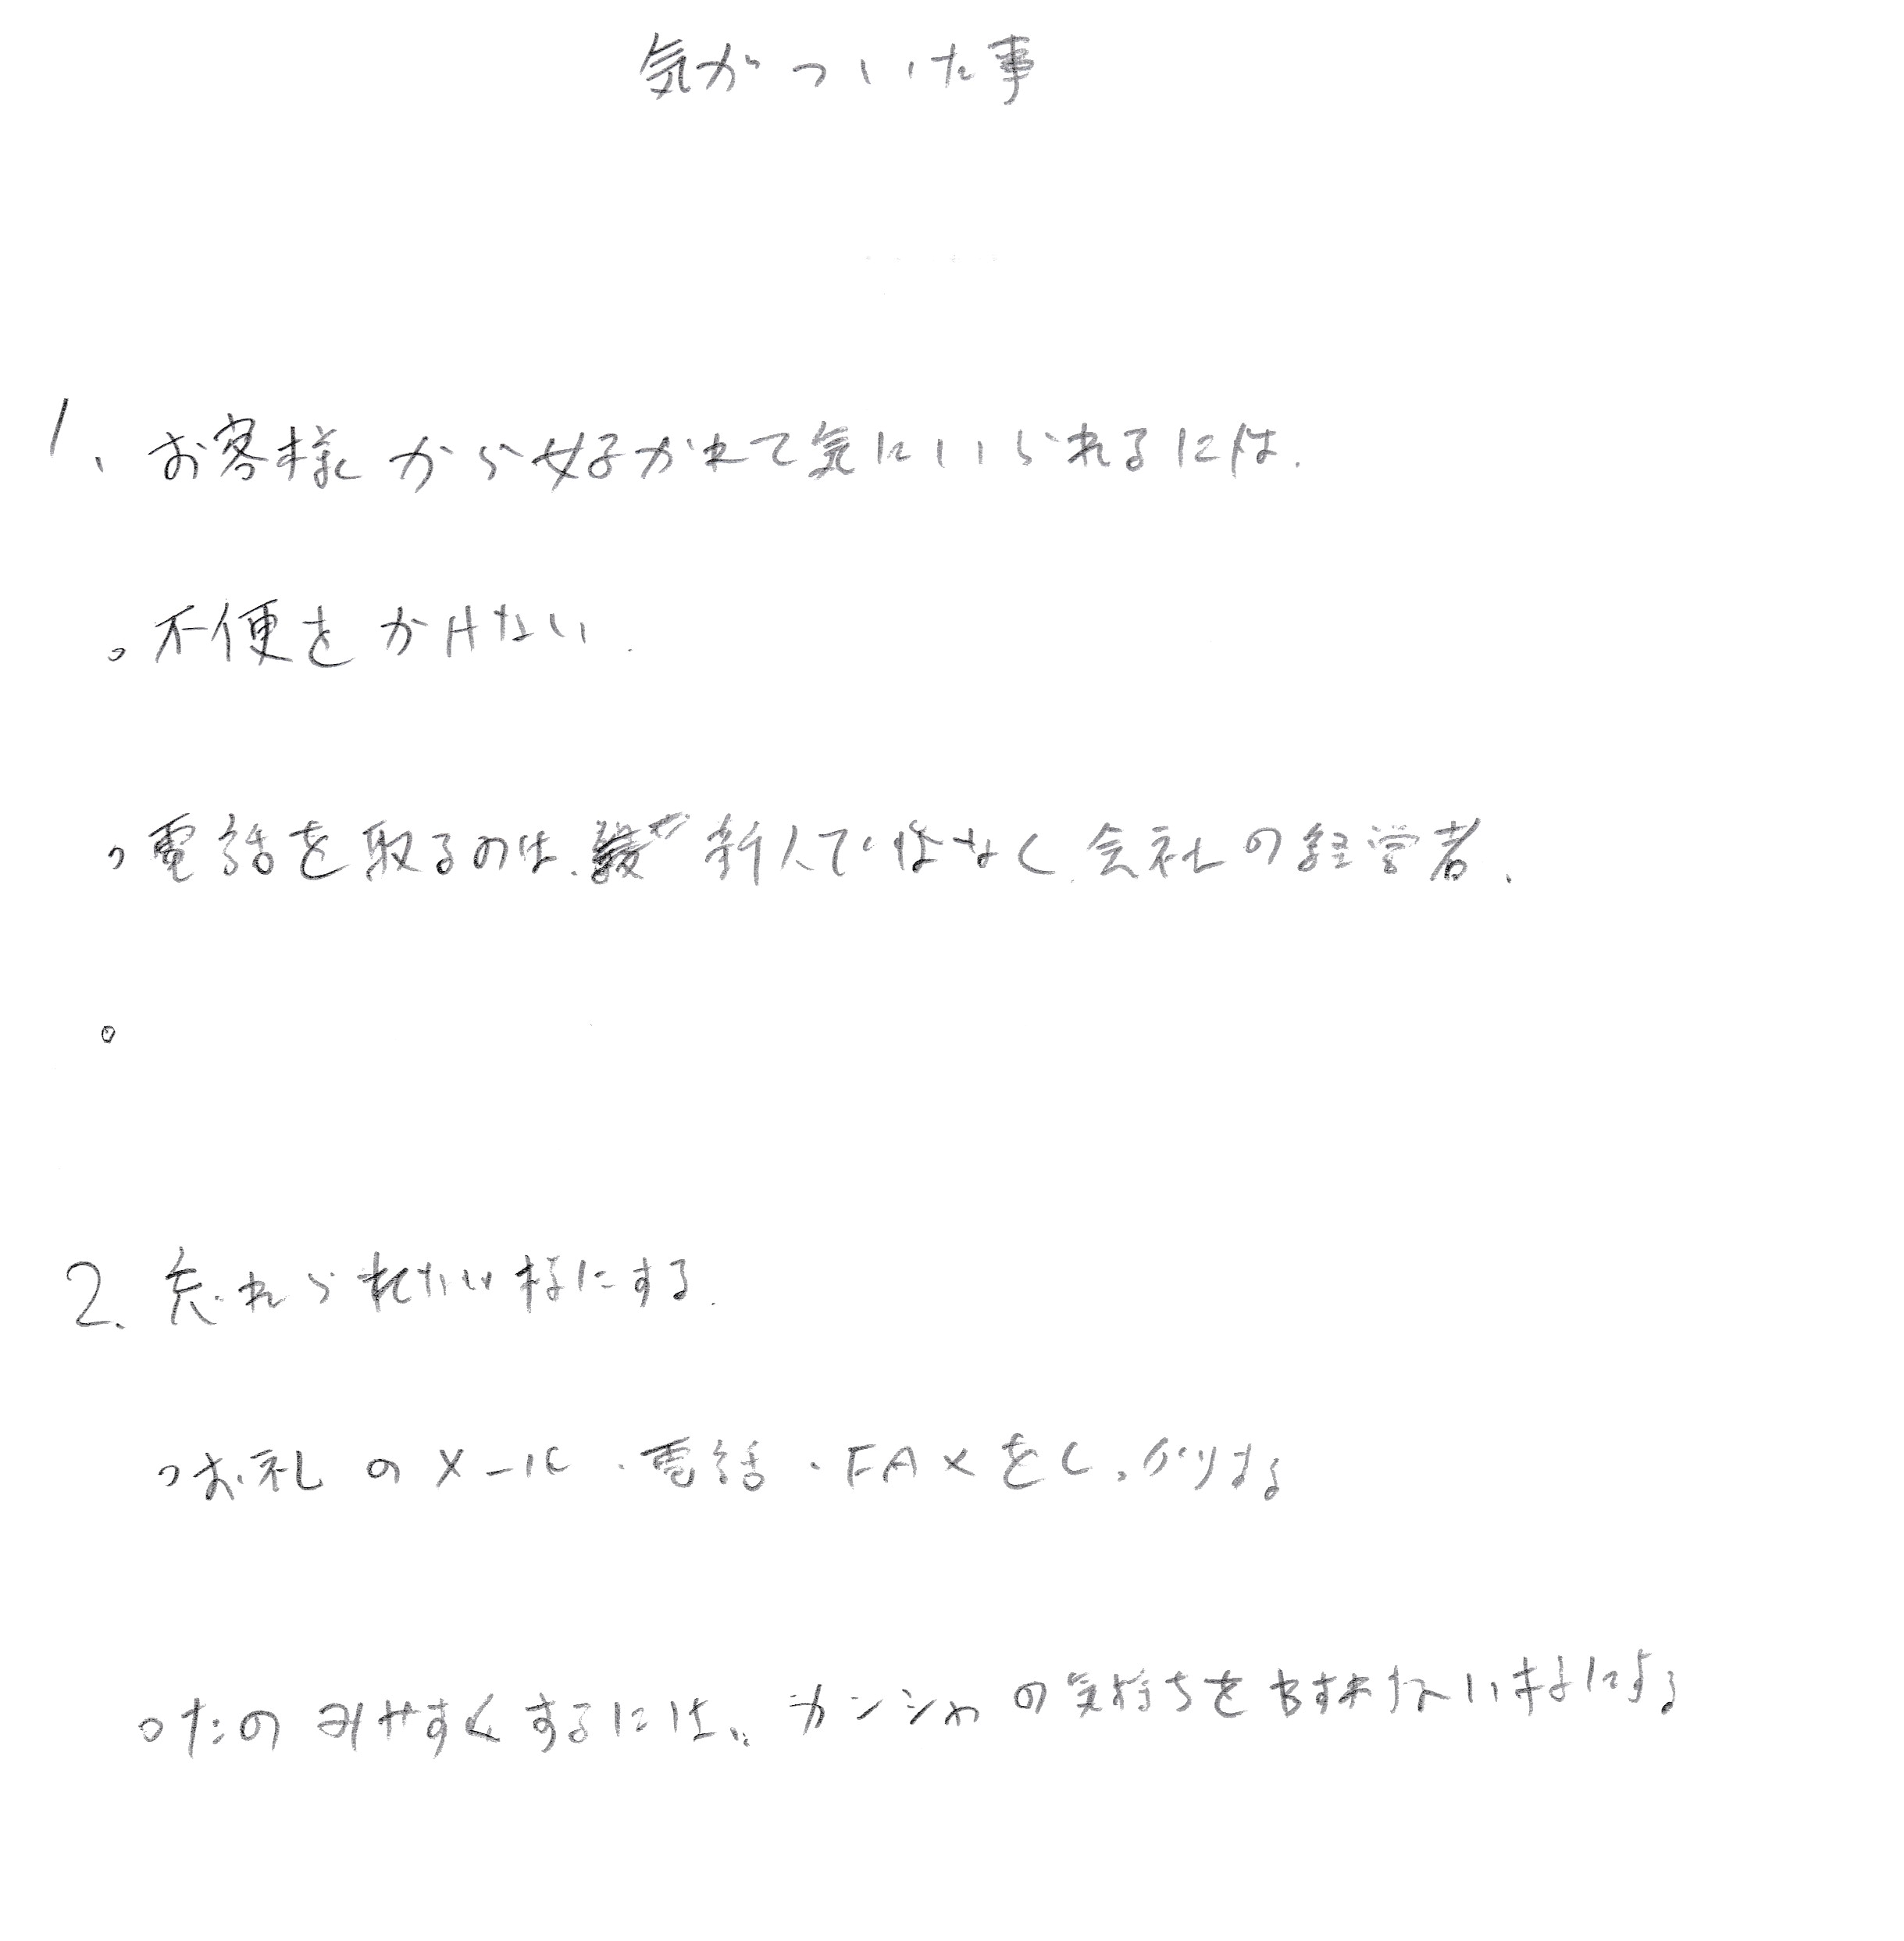 気がついた事
1、お客様から好かれて気にいられるには.
。不便をかけない.
。電話を取るのは、新人ではなく、会社の経営者.
。
2. 忘れられない様にする.
。お礼のメール・電話・FAXをしっかりする
。たのみやすくするには、カンシャの気持ちを